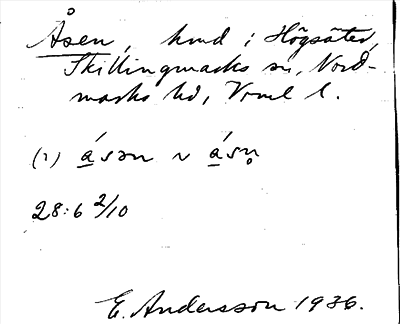 Åsen, hmd i Högsäter,
Skillingmarks sn, Nord-
marks hd, Vrml l.
(1) á̱sən ~ á̱sn̥
28:6 2/10
E. Andersson 1936.